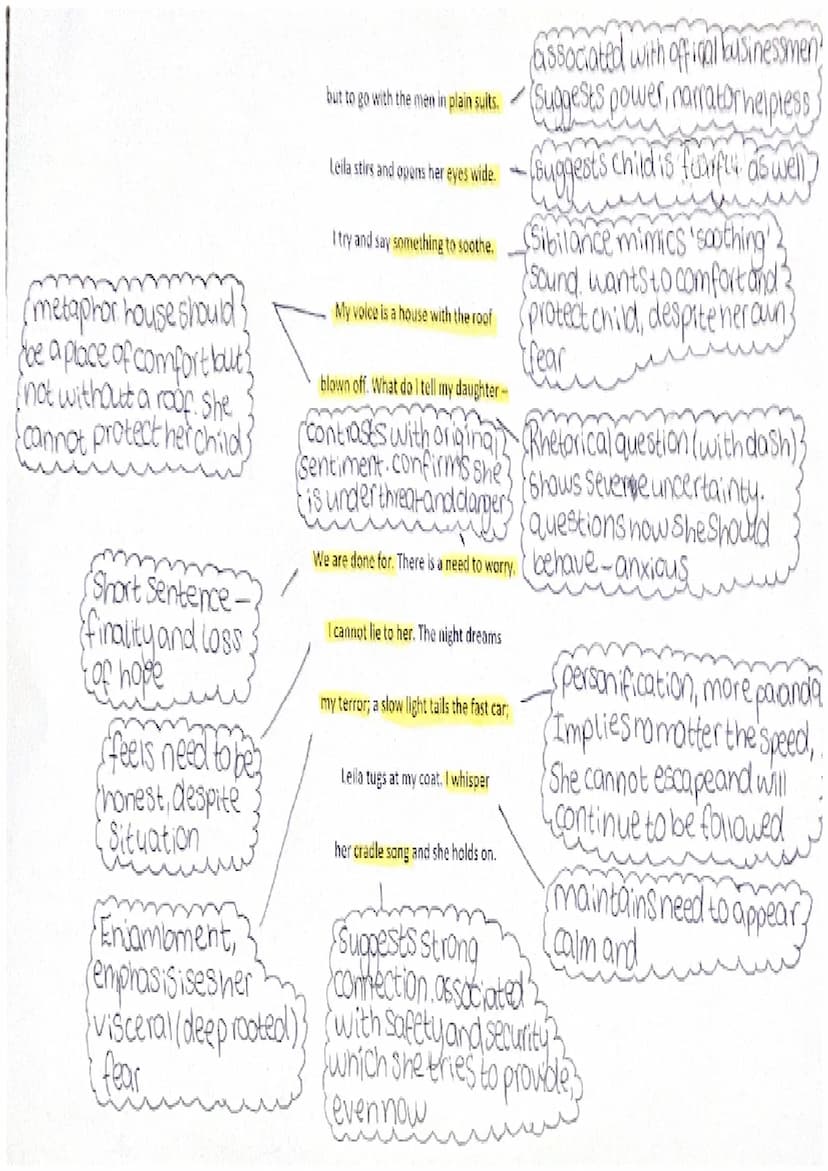 but to go with the men in plain suits.
associated with offical businessmen
suggests power, narrator helpless
Leila stirs and opens her eyes wide.
suggests child is fearful as well
I try and say something to soothe.
Sibilance mimics 'soothing'
sound. wants to comfort and
protect child, despite her own
fear
My voice is a house with the roof
blown off. What do I tell my daughter –
metaphor. house should
be a place of comfort but
not without a roof. She
cannot protect her child
contrasts with original
sentiment. confirms she
is under threat and danger
Rhetorical question (with dash)
shows severe uncertainty.
questions how she should
behave – anxious
We are done for. There is a need to worry.
Short sentence –
finality and loss
of hope
I cannot lie to her. The night dreams
my terror; a slow light tails the fast car;
feels need to be
honest, despite
situation
personification, more paranoia
Implies no matter the speed,
She cannot escape and will
continue to be followed
Leila tugs at my coat. I whisper
her cradle song and she holds on.
maintains need to appear
calm and
Enjambment,
emphasisises her
visceral (deep rooted)
fear
suggests strong
connection. associated
with safety and security
which she tries to provide,
even now